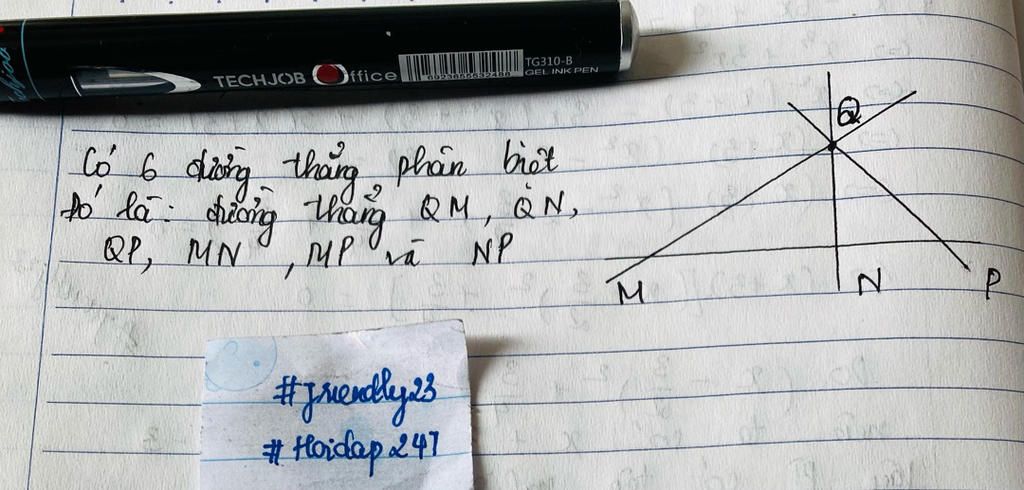 TECHJOB Office
6925056632488
TG310-B
GEL INK PEN
Có 6 đường thẳng phân biệt
Đó là: đường thẳng QM, QN,
QP, MN, MP và NP
Q
M
N
P
#friendly23
#Hoidap247